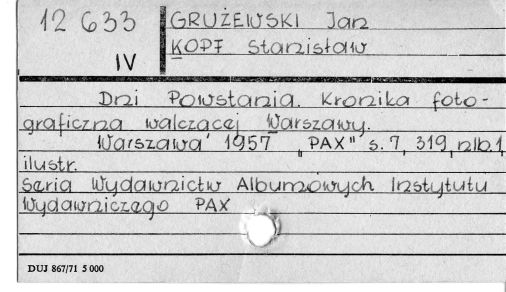 12 633
IV
GRUŻEWSKI Jan
KOPF Stanisław
Dni Powstania. Kronika foto-
graficzna walczącej Warszawy.
Warszawa 1957 „PAX" s. 7, 319, nlb. 1
ilustr.
Seria Wydawnictw Albumowych Instytutu
Wydawniczego PAX
DUJ 867/71 5 000